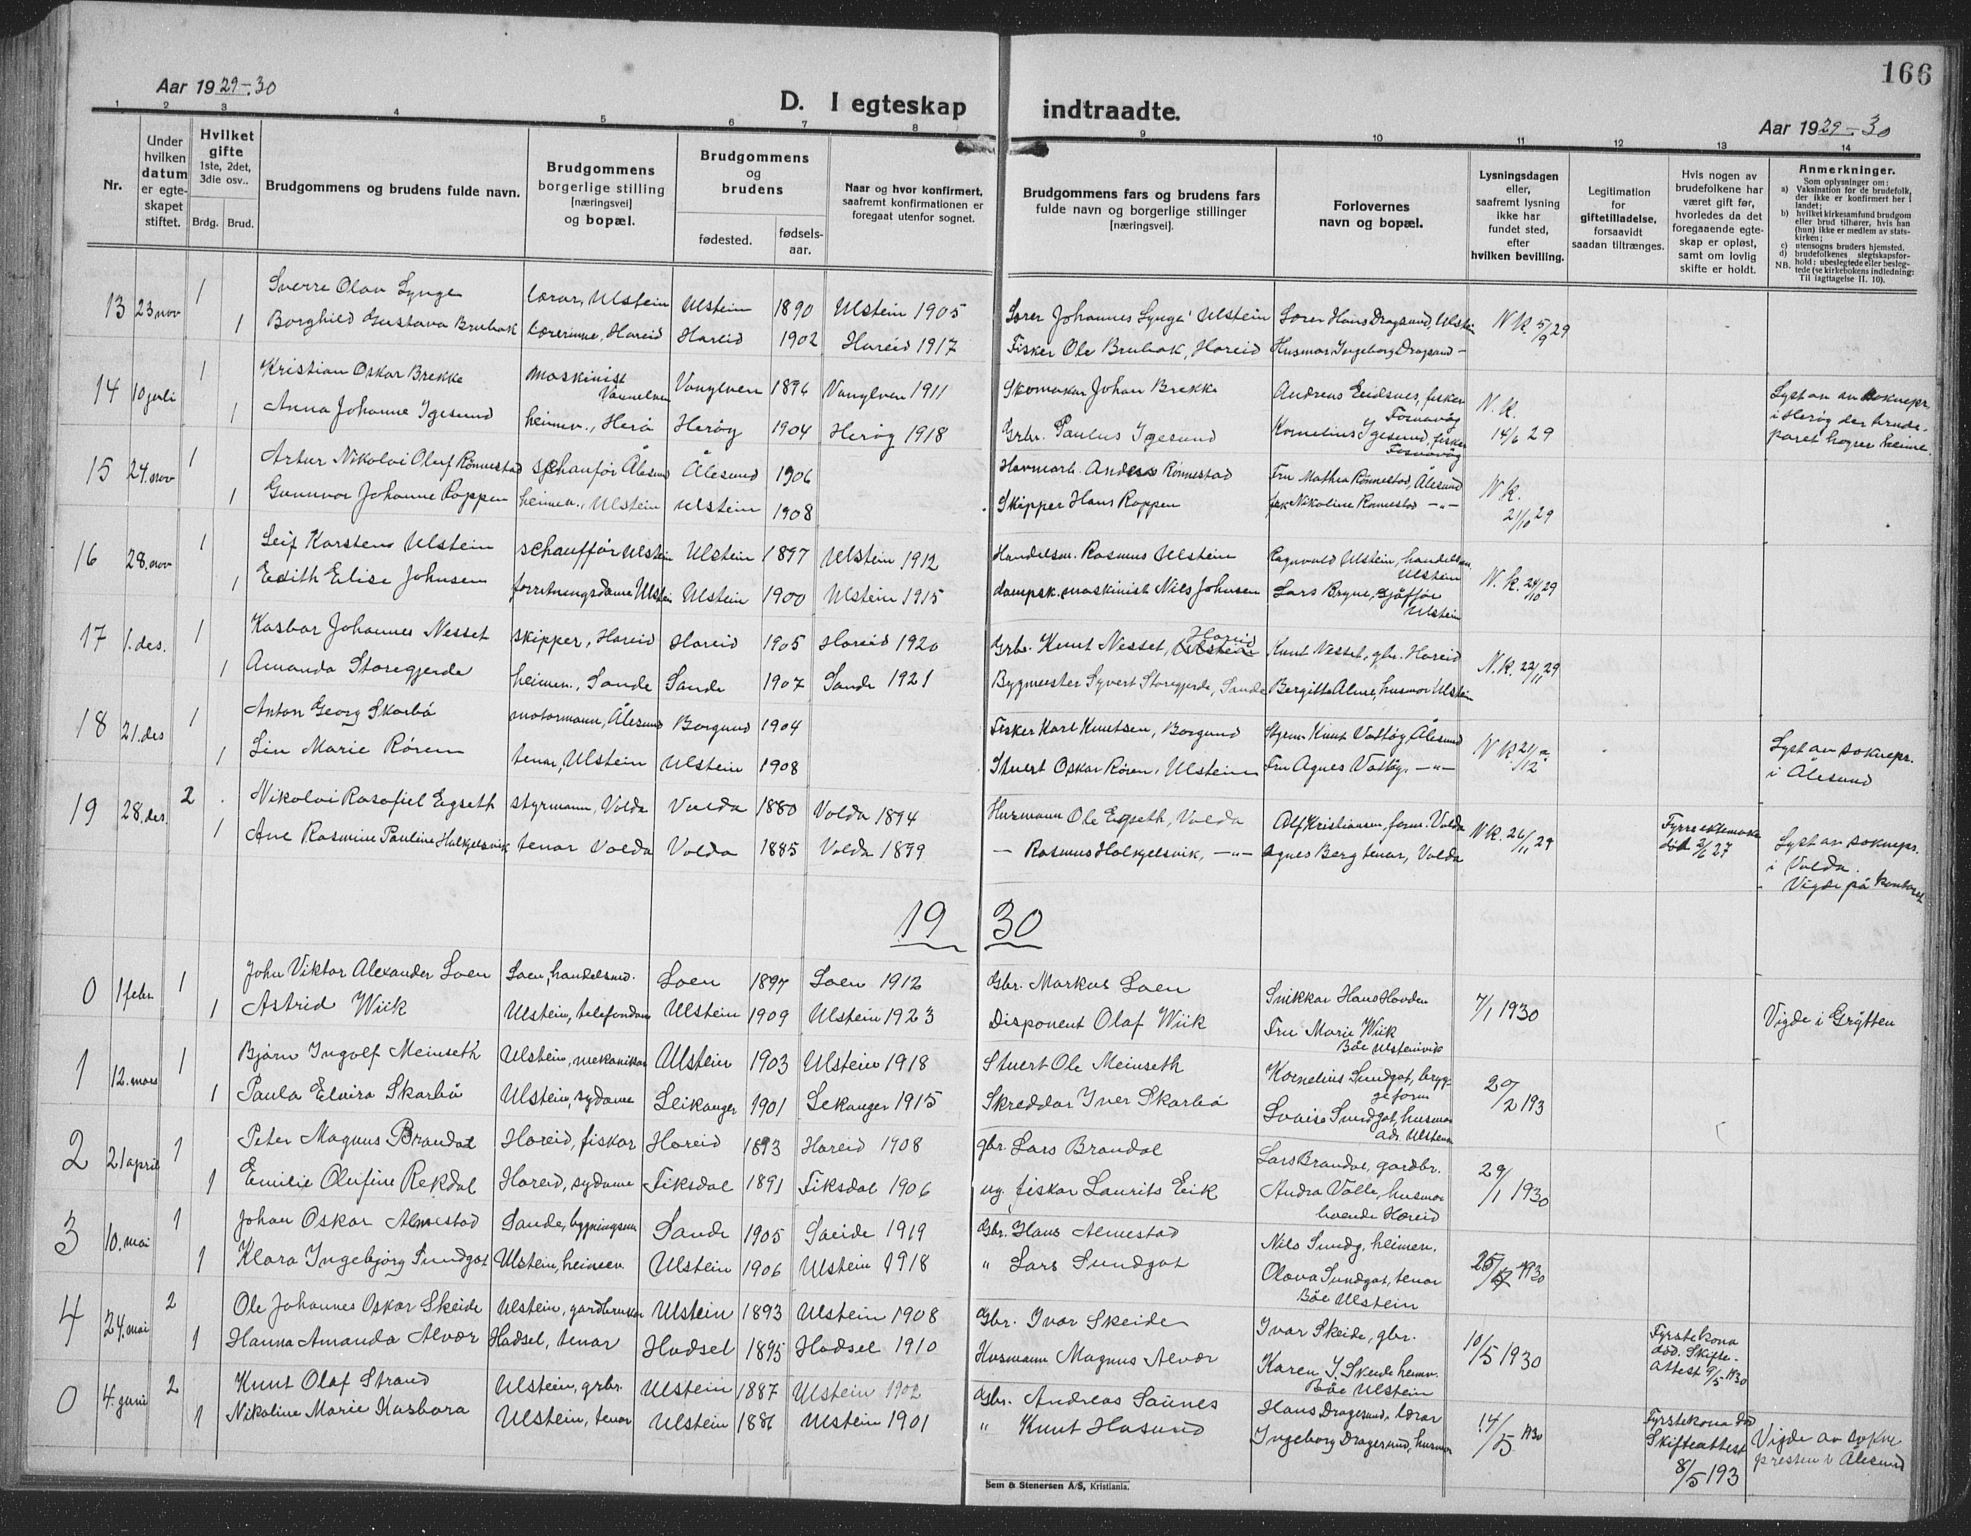 166
Aar 1929-30
D. I egteskap indtraadte.
Aar 1929-30
1 2 3 4 5 6 7 8 9 10 11 12 13 14
Nr.
Under hvilken datum er egteskapet stiftet.
Hvilket gifte 1ste, 2det, 3die osv.. Brdg. Brud.
Brudgommens og brudens fulde navn.
Brudgommens borgerlige stilling [næringsvei] og bopæl.
Brudgommens og brudens fødested. fødselsaar.
Naar og hvor konfirmert, saafremt konfirmationen er foregaat utenfor sognet.
Brudgommens fars og brudens fars fulde navn og borgerlige stillinger [næringsvei].
Forlovernes navn og bopæl.
Lysningsdagen eller, saafremt lysning ikke har fundet sted, efter hvilken bevilling.
Legitimation for giftetilladelse, forsaavidt saadan tiltrænges.
Hvis nogen av brudefolkene har været gift før, hvorledes da det foregaaende egteskap er opløst, samt om lovlig skifte er holdt.
Anmerkninger.
Som oplysninger om:
a) Vaksination for de brudefolk, der ikke er konfirmert her i landet;
b) hvilket kirkesamfund brudgom eller brud tilhører, hvis han (hun) ikke er medlem av statskirken;
c) utensogns bruders hjemsted.
d) brudefolkenes slegtskapsforhold: ubeslegtede eller beslegtede (se kirkebokens indledning:
NB. Til iagttagelse II. 10).
13 23 nov 1 Sverre Olav Lynge lærar, Ulstein Ulstein 1890 Ulstein 1905 Lærer Johannes Lynge Ulstein Lærer Hans Dragsund, Ulstein N K 5/9 29
1 Borghild Gustava Brubak lærerinne, Hareid Hareid 1902 Hareid 1917 Fisker Ole Brubak, Hareid Husmor Ingeborg Dragsund -
14 10 juli 1 Kristian Oskar Brekke maskinist Vannelven Vanylven 1896 Vanylven 1911 Skomakar Johan Brekke Andreas Eidsnes, fisker Fosnavåg N. K. 14/6 29 Lyst av soknepr. i Herøy der brudeparet høyrer heime.
1 Anna Johanne Igesund heimev., Herø Herøy 1904 Herøy 1918 Grbr. Paulus Igesund Kornelius Igesund, fisker Fosnavåg
15 24. nov 1 Artur Nikolai Oluf Rønnestad schaufør Ålesund Ålesund 1906 Havnearb. Anders Rønnestad Fru Mathea Rønnestad, Ålesund N K. 21/10 29
1 Gunnvor Johanne Roppen heimev., Ulstein Ulstein 1908 Skipper Hans Roppen frk Nikoline Rønnestad -"-
16 28. nov 1 Leif Karstens Ulstein schauffør Ulstein Ulstein 1897 Ulstein 1912 Handelsm. Rasmus Ulstein Ragnvald Ulstein, handelsm. Ulstein N. K. 24/10 29
1 Edith Elise Johnsen forretningsdame Ulstein Ulstein 1900 Ulstein 1915 dampsk. maskinist Nils Johnsen Lars Bryne, sjåffør Ulstein
17 1. des. 1 Kasbar Johannes Nesset skipper, Hareid Hareid 1905 Hareid 1920 Grbr. Knut Nesset, Hareid Knut Nesset, gbr. Hareid N. K. 22/11 29
1 Amanda Storegjerde heimev., Sande Sande 1907 Sande 1921 Bygmeester Syvert Storegjerde, Sande Bergitte Alme, husmor Ulstein
18 21. des 1 Anton Georg Skarbø motormann, Ålesund Borgund 1904 Fisker Karl Knutsen, Borgund Styrm Knut Vattøy, Ålesund N K Lyst av soknepr. i Ålesund
1 Lin Marie Røren tenar, Ulstein Ulstein 1908 Stuert Oskar Røren, Ulstein Fru Agnes Vattøy, -"-
19 28. des. 2 Nikolai Rasafiel Egseth styrmann, Volda Volda 1880 Volda 1894 Husmann Ole Egseth, Volda Alf Kristiansen, form. Volda N K. 26/11 29 Fyrre ektemake død 2/6 27 Lyst av soknepr. i Volda. Vigde på kontoret
1 Ane Rasmine Pauline Halkjelsvik tenar Volda Volda 1885 Volda 1899 - Rasmus Halkjelsvik, -"- Agnes Berg tenar, Volda
19 30
0 1 febr. 1 John Viktor Alexander Loen Loen, handelsmd. Loen 1897 Loen 1912 Gbr. Markus Loen Snikkar Hans Hovden 7/1 1930 Vigde i Grytten
1 Astrid Wiik Ulstein, telefondame Ulstein 1909 Ulstein 1923 Disponent Olaf Wiik Fru Marie Wiik Bøe Ulsteinvik
1 12. mars 1 Bjørn Ingolf Meinseth Ulstein, mekanikar Ulstein 1903 Ulstein 1918 Stuert Ole Meinseth Kornelius Sundgot, bryggeform 20/2 193
1 Paula Elvira Skarbø Ulstein, sydame Leikanger 1901 Lekanger 1915 Skreddar Iver Skarbø Lovise Sundgot, husmor
2 21 april 1 Peter Magnus Brandal Hareid, fiskar Hareid 1893 Hareid 1908 gbr. Lars Brandal Lars Brandal, gardbr. 29/1 1930
1 Emilie Olufine Rekdal Hareid, sydame Fiksdal 1891 Fiksdal 1906 ug. fiskar Laurits Eik Andra Valle, husmor Hareid
3 10. mai 1 Johan Oskar Almestad Sande, bygningsm Sande 1905 Sande 1919 Gbr. Hans Almestad Nils Sundg, heimev. 1930
1 Klara Ingebjørg Sundgot Ulstein, heimeev Ulstein 1906 Ulstein 1918 " Lars Sundgot Olava Sundgot, tenar Bøe Ulstein
4 24. mai 2 Ole Johannes Oskar Skeide Ulstein, gardbrukar Ulstein 1893 Ulstein 1908 Gbr. Ivar Skeide Ivar Skeide, gbr. 10/5 1930 Fyrstekona død. Skifteattest 9/5 1930
1 Hanna Amanda Alvær Hadsel, tenar Hadsel 1895 Hadsel 1910 Husmann Magnus Alvær Karen I. Skeide heimv. Bøe Ulstein
0 4. juni 2 Knut Olaf Strand Ulstein, grbr. Ulstein 1887 Ulstein 1902 Gbr. Andreas Saunes Hans Dragesund, lærar 14/5 1930 Fyrstekona død Skifteattest 8/5 193 Vigde av soknepresten i Ålesund
1 Nikoline Marie Kasbara Ulstein, tenar Ulstein 1886 Ulstein 1901 " Knut Hasund Ingeborg Dragesund, husmor
Sem & Stenersen A/S, Kristiania.